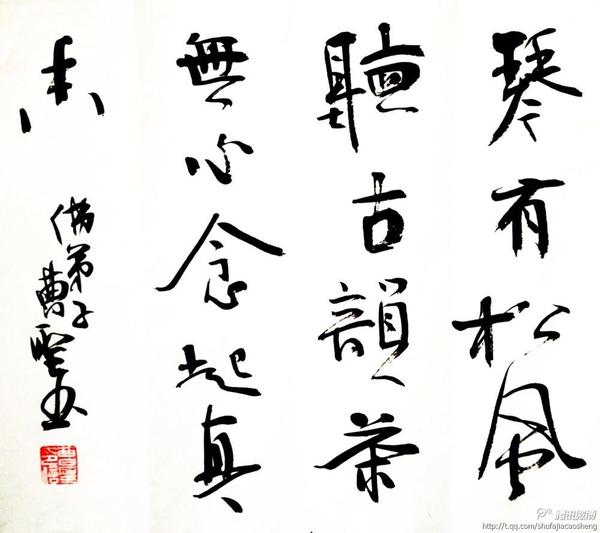 琴有松風
聽古韻茶
無心念起真
香
佛弟子曹聖书
腾讯微博
http://t.qq.com/shufajiacaosheng